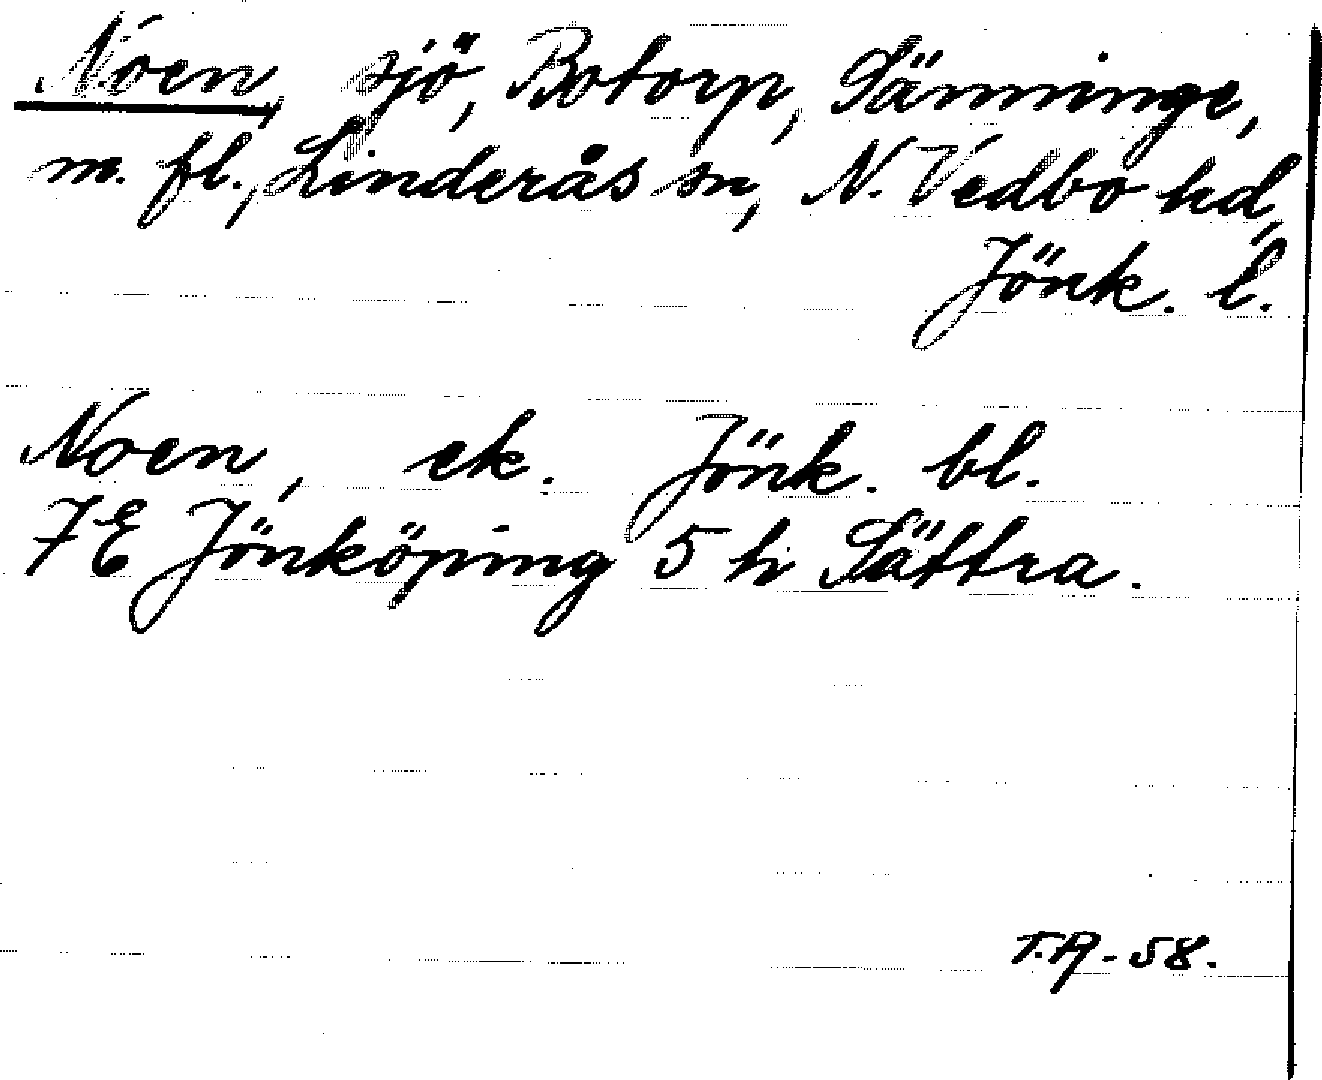 Noen, sjö, Botorp, Sänninge,
m. fl., Linderås sn, N. Vedbo hd,
Jönk. l.
Noen, ek. Jönk. bl.
7E Jönköping 5 h Sättra.
T.A - 58.